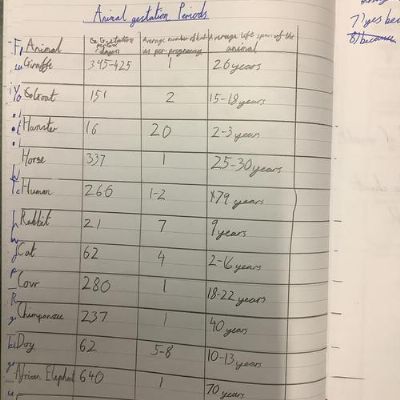 Animal gestation Periods
Animal
Gestation Period days
Average number of
as per pregnancy
Average life span of the animal
Giraffe 395-425 1 26 years
151 2 15-18 years
Hamster 16 20 2-3 years
Horse 337 1 25-30 years
Human 266 1-2 79 years
Rabbit 21 7 9 years
Cat 62 4 2-16 years
Cow 280 1 18-22 years
Chimpanzee 237 1 40 years
Dog 62 5-8 10-13 years
African Elephant 640 1 70 years
7) yes
8) because